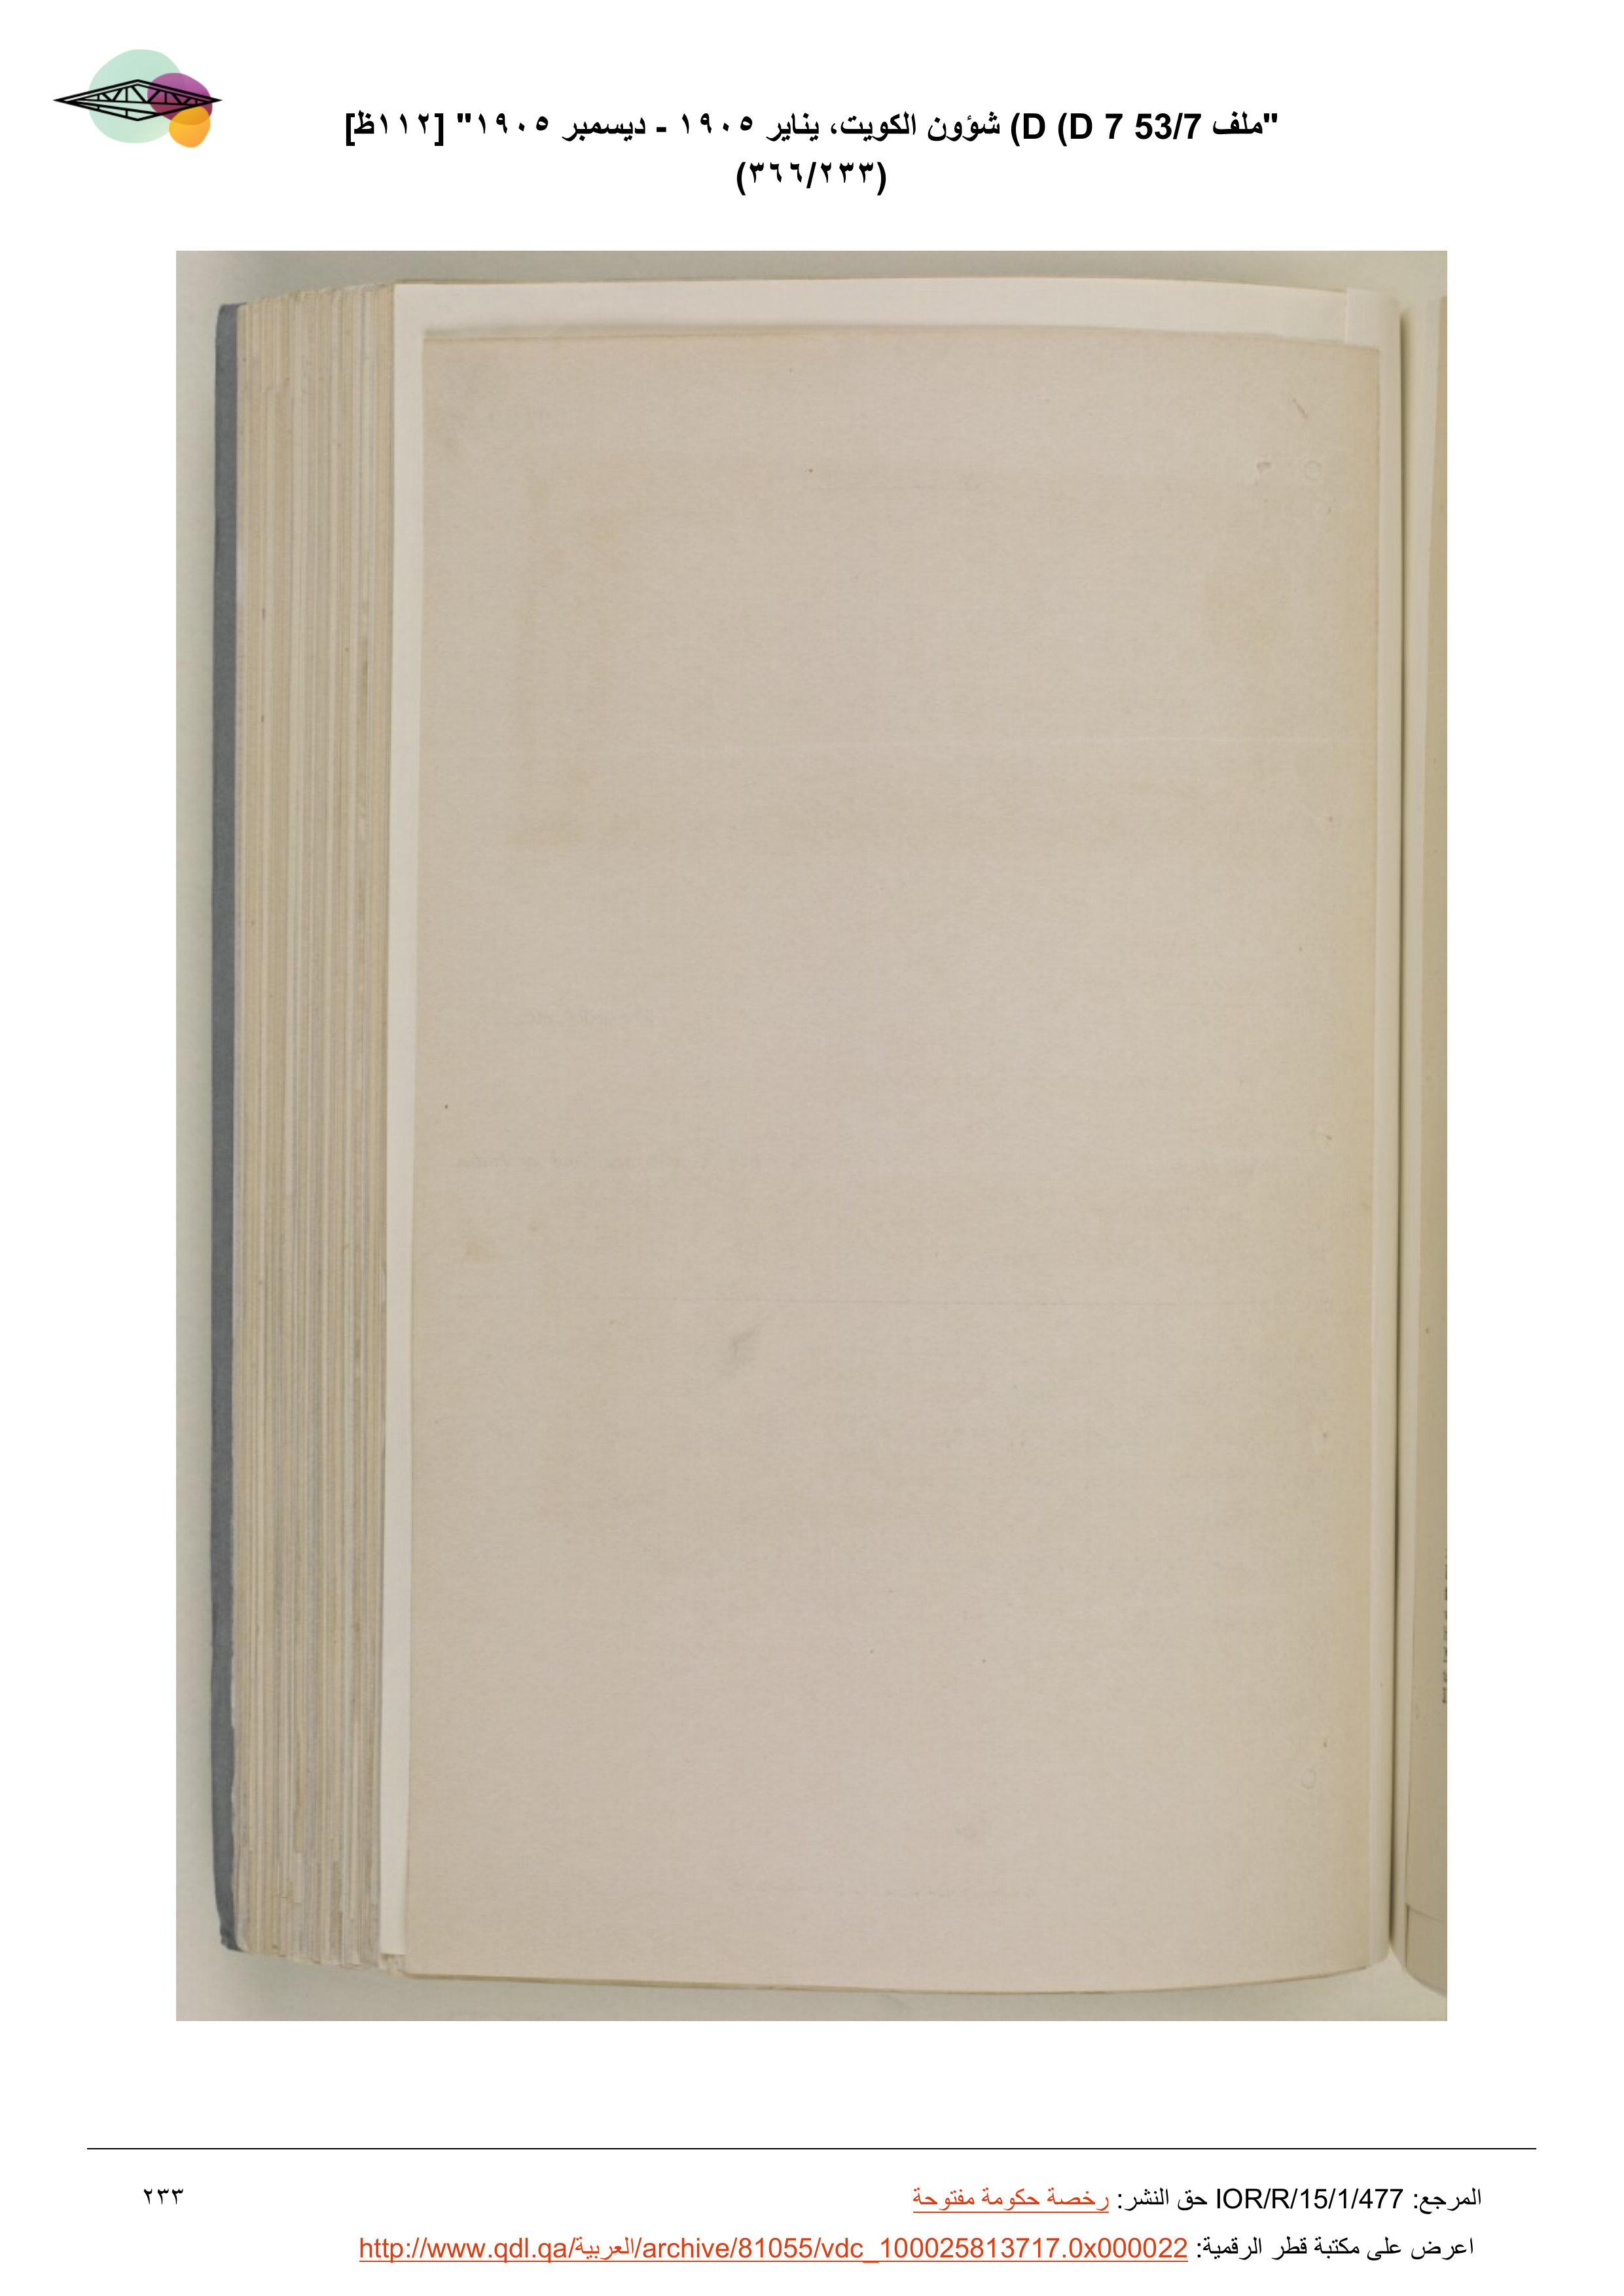 "ملف 53/7 D 7) D) شؤون الكويت، يناير ١٩٠٥ - ديسمبر ١٩٠٥" [١١٢ظ]
(٣٦٦/٢٣٣)
المرجع: IOR/R/15/1/477 حق النشر: رخصة حكومة مفتوحة
٢٣٣
اعرض على مكتبة قطر الرقمية: http://www.qdl.qa/العربية/archive/81055/vdc_100025813717.0x000022